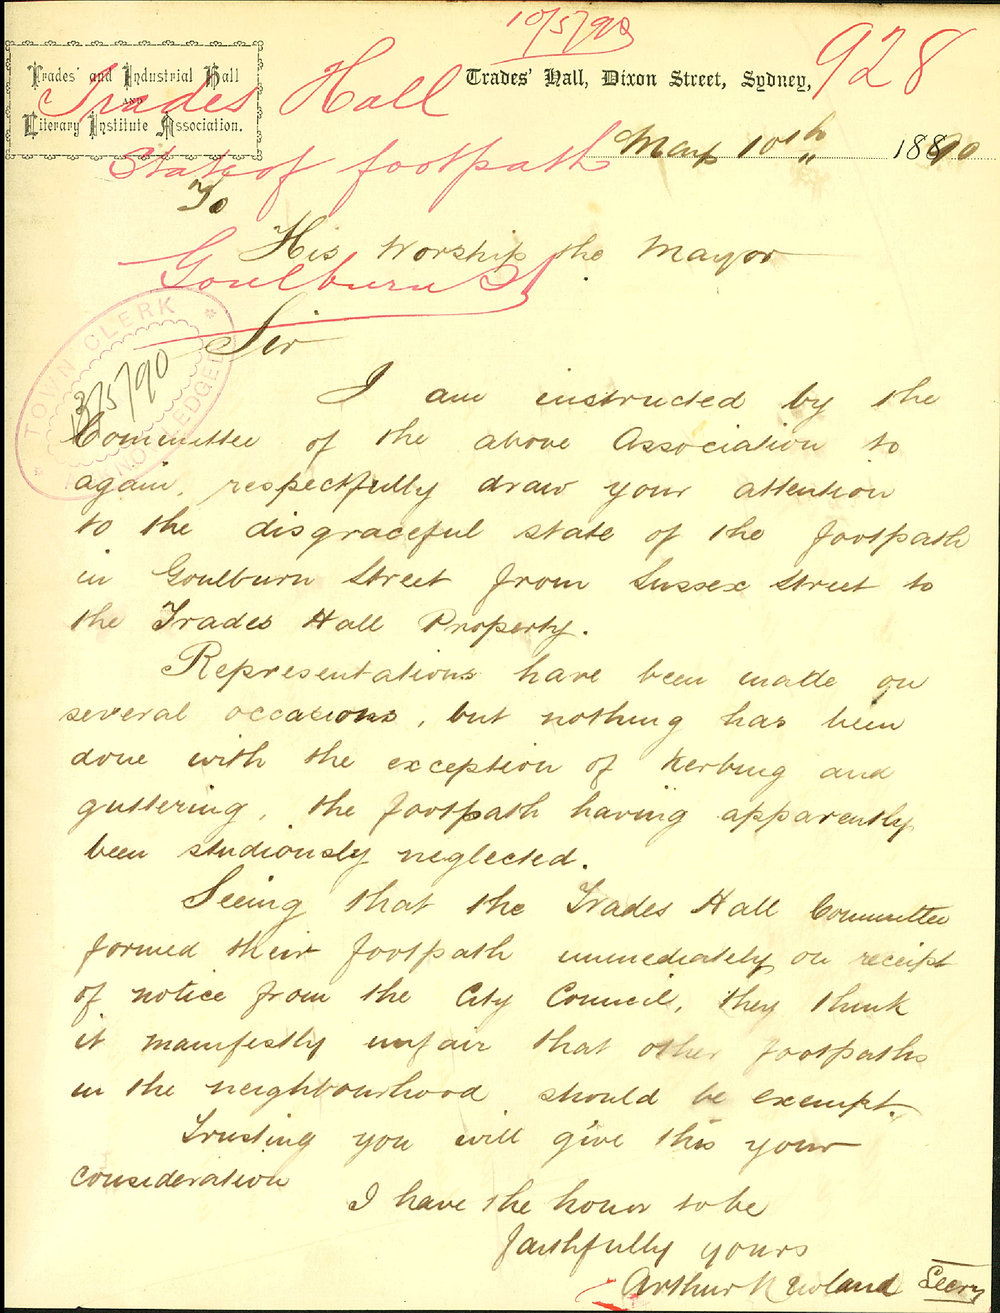 10/5/90
928
Trades' and Industrial Hall
AND
Literary Institute Association.
Trades' Hall, Dixon Street, Sydney,
Trades Hall
State of footpath
Goulburn St
May 10th 1890
To
His Worship the Mayor
Sir
TOWN CLERK
ACKNOWLEDGED
13/5/90
I am instructed by the
Committee of the above Association to
again, respectfully draw your attention
to the disgraceful state of the footpath
in Goulburn Street from Sussex Street to
the Trades Hall Property.
Representations have been made on
several occasions, but nothing has been
done with the exception of Kerbing and
guttering, the footpath having apparently
been studiously neglected.
Seeing that the Trades Hall Committee
formed their footpath immediately on receipt
of notice from the City Council, they think
it manifestly unfair that other footpaths
in the neighbourhood should be exempt.
Trusting you will give this your
consideration
I have the honor to be
faithfully yours
Arthur Rewland Secry